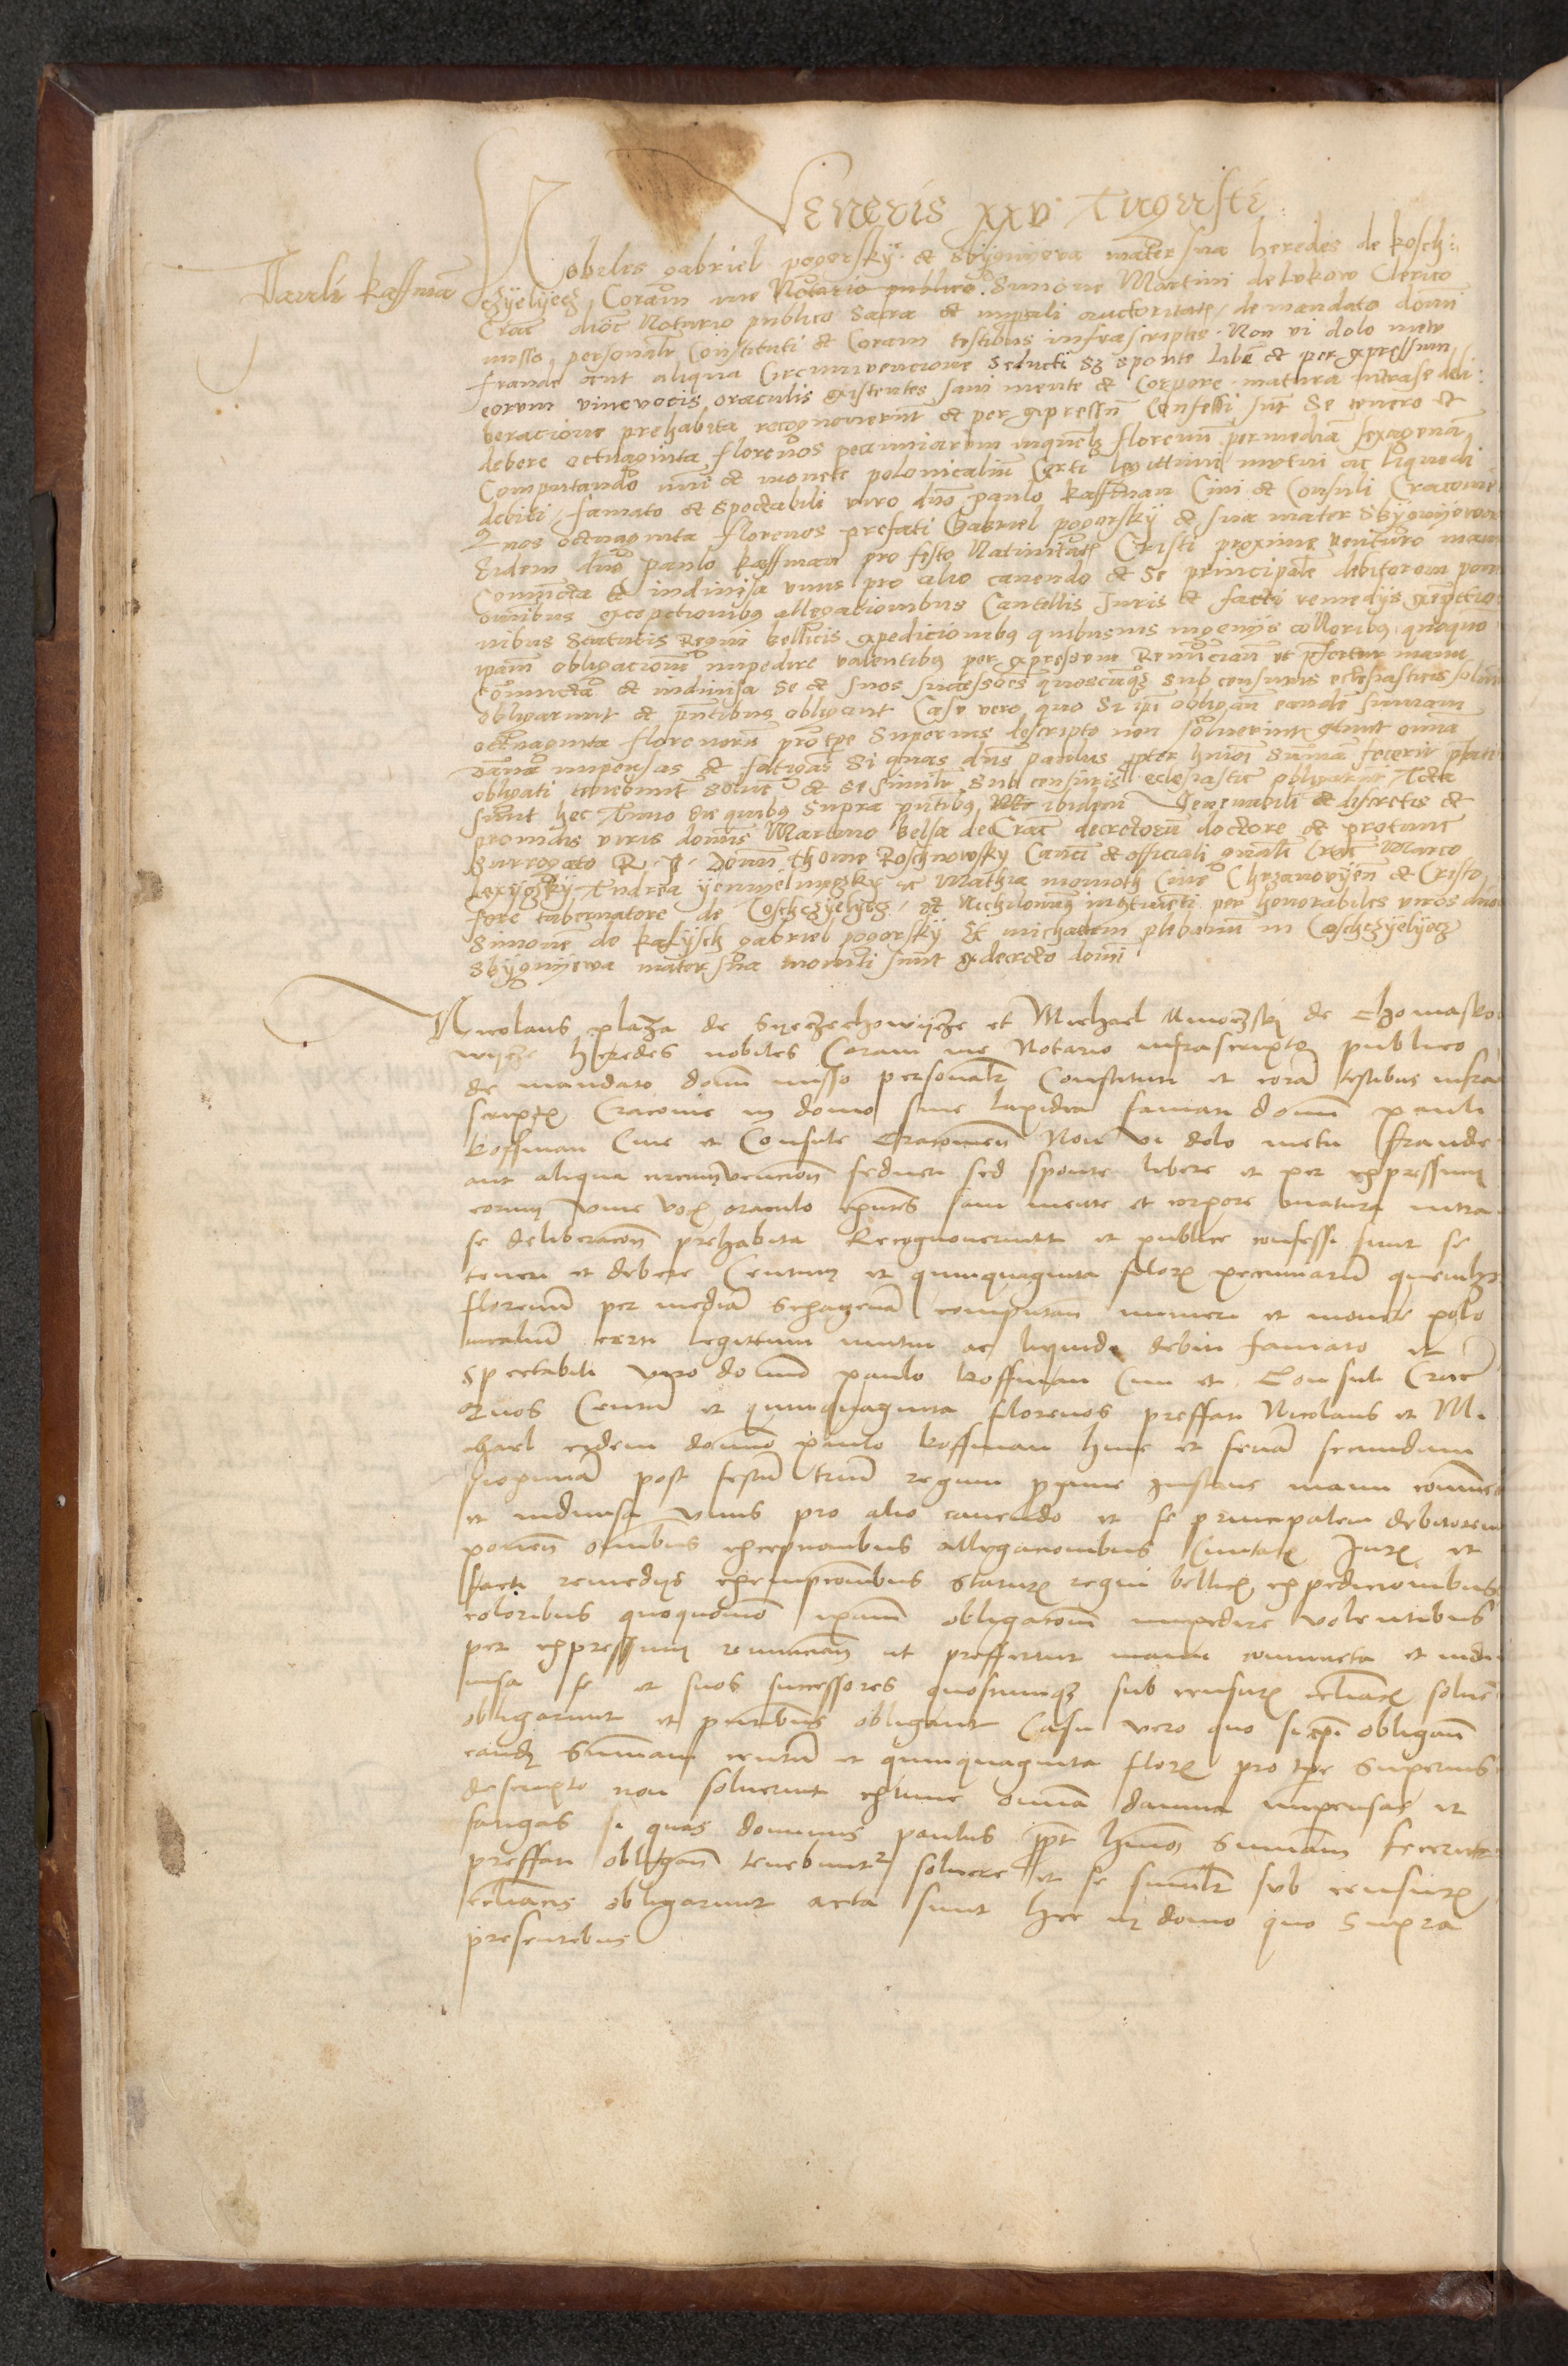 Veneris xxv Augusti
Pauli kaffman
Nobiles gabriel pogorsky et Sbÿgnÿewa mater sua heredes de kosch:
czÿelÿecz Coram me Notario publico Simone Martini de lukow Clerico
Crac dioc Notario publico Sacra et imperiali auctoritate de mandato domini
misso personaliter Constituti et Coram testibus infrascriptis Non vi dolo metu
fraude aut aliqua Circumvencione Seducti Sz sponte libere et per expressum
eorum vive vocis oraculis existentes sani mente et Corpore matura intra se deli:
beracione prehabita recognoverunt et per expressum Confessi sunt Se tenere et
debere octuaginta florenos pecuniarum in quemlibet florenum per mediam sexagenam
Computando numeri et monete polonicalium Certi legittimi mutui ac liquidi
debiti famato et Spectabili viro dno paulo kaffman Civi et Consuli Cracovie
Quos octuaginta florenos prefati Gabriel pogorskÿ et sua mater Sbÿgnÿewa
Eidem dno paulo kaffman pro festo Nativitatis Cristi proxime venturo manu
Coniuncta et indivisa unus pro alio cavendo et Se principalem debitorem pon
omnibus excepcionibus allegacionibus Cautellis Juris et facti remedÿs exempcio
nibus Statutis Regni bellicis expedicionibus quibusvis ingenÿs colloribus quoquo
ipsam obligacionem impedire valentibus per expressum Renuncian ut prefertur manu
Coniuncta et indivisa Se et suos successores quoscunque sub censuris ecclesiasticis solvere
obligarunt et presentibus obligant Casu vero quo Si ipsi obligati eandem summam
octuaginta florenorum pro tempore Superius descripto non solverint extunc omnia
damna impensas et fatigas Si quas dns paulus propter huiusmodi Summam fecerit prefati
obligati tenebunt solvere et se similiter Sub censuris ecclesiasticis obligarunt Acta
sunt hec Anno die quibus Supra presentibus ibidem Venerabili et discretis et
providis viris dominis Martino belza de Crac decretorum doctore et protunc
Surrogato R. P. Domini thome Roschnowsky Canci et officiali generali Crac Marco
Andrea et Mathia momoth Cive Chrzanovÿen et Cristo
fero tabernatore de Coschczÿelÿecz et Nichilominus per honorabiles viros dnos
Simonem de kalÿsch gabriel pogorskÿ Et michaelem plebanum in Coschczÿelÿecz
Sbÿgnÿewa mater sua moniti sunt ex decreto domini
Nicolaus plaza de et Michael de Thomasko
wÿcze heredes nobiles Coram me Notario infrascripto publico
de mandato domini misso personaliter Constituti et coram testibus infra
scriptis Cracovie in domo sive lapidea famati domini pauli
koffman Cive et Consule Cracoviensi Non vi dolo metu fraude
aut aliqua circumvencione seducti sed sponte libere et per expressum
eorum vive vocis oraculo existentes sani mente et corpore matura intra
se deliberacione prehabita Recognoverunt et publice confessi sunt se
teneri et debere Centum et quinquaginta florenos pecuniarum quemlibet
florenum per mediam sexagenam computan numeri et monete polo
nicalium certi legittimi mutui ac liquidi debiti famato et
Spectabili viro domino paulo koffman Civi et Consuli Crac
Quos Centum et quinquaginta florenos preffati Nicolaus et Mi
chael eidem domino paulo koffman hinc et feriam secundam
proximam post festum trium regum proxime instans manu coniuncta
et indivisa unus pro alio cavendo et se principalem debitorem
ponen omnibus excepcionibus allegacionibus Cautelis Juris et
facti remedÿs exempcionibus statutis regni bellicis expedicionibus
coloribus quoquomodo ipsam obligacionem impedire volentibus
per expressum renuncian ut preffertur manu coniuncta et indi
visa se et suos successores quoscumque sub censuris ecclesiasticis solvere
obligarunt et presentibus obligant Casu vero quo si ipsi obligati
eandem Summam centum et quinquaginta florenos pro tempore superius
descripto non solverint extunc omnia damna impensas et
fatigas si quas dominus paulus propter huiusmodi Summam fecerit
preffati obligati tenebuntur solvere et se similiter sub censuris
ecclesiasticis obligarunt acta sunt hec in domo quo supra
presentibus